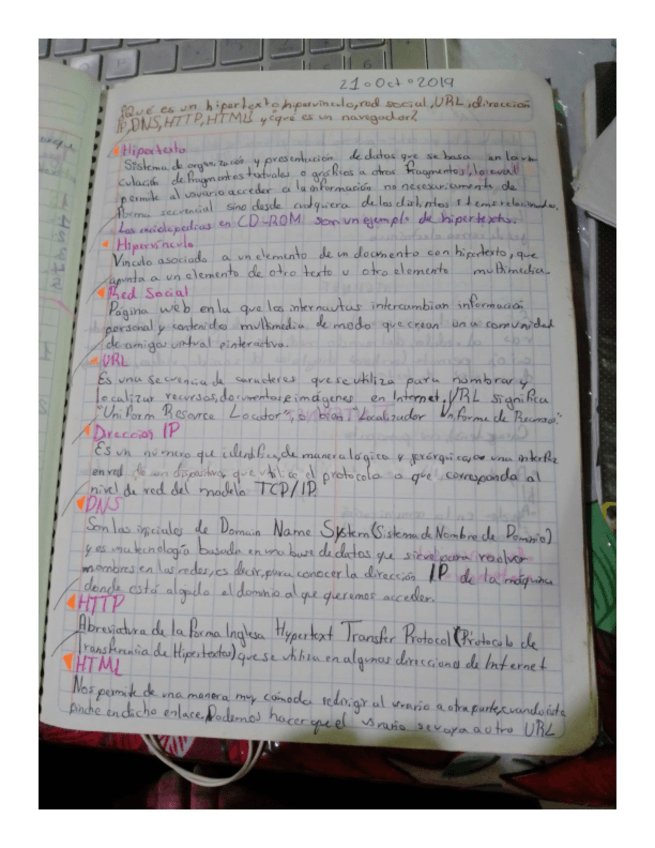 21 o Oct o 2019
¿Qué es un hipertexto, hipervínculo, red social, URL, dirección
IP, DNS, HTTP, HTML y ¿qué es un navegador?
Hipertexto
Sistema de organización y presentación de datos que se basa en la vin
culación de fragmentos textuales o gráficos a otros fragmentos, lo cual
permite al usuario acceder a la información no necesariamente de
forma secuencial sino desde cualquiera de los distintos items relacionados.
Las enciclopedias en CD-ROM son un ejemplo de hipertexto.
Hipervínculo
Vinculo asociado a un elemento de un documento con hipertexto, que
apunta a un elemento de otro texto u otro elemento multimedia.
Red Social
Página web en la que los internautas intercambian información
personal y contenidos multimedia de modo que crean una comunidad
de amigos virtual e interactiva.
URL
Es una secuencia de caracteres que se utiliza para nombrar y
localizar recursos, documentos e imágenes en Internet. URL significa
"Uniform Resource Locator", o bien "Localizador Uniforme de Recursos"
Dirección IP
Es un número que identifica, de manera lógica y jerárquica, a una interfaz
en red de un dispositivo, que utilice el protocolo o que corresponda al
nivel de red del modelo TCP/IP.
DNS
Son las iniciales de Domain Name System (Sistema de Nombre de Dominio)
y es una tecnología basada en una base de datos que sirve para resolver
nombres en las redes, es decir, para conocer la dirección IP de la máquina
donde está alojado el dominio al que queremos acceder.
HTTP
Abreviatura de la forma Inglesa Hypertext Transfer Protocol (Protocolo de
Transferencia de Hipertextos) que se utiliza en algunas direcciones de Internet
HTML
Nos permite de una manera muy cómoda redirigir al usuario a otra parte, cuando éste
pinche en dicho enlace, Podemos hacer que el usuario se vaya a otro URL